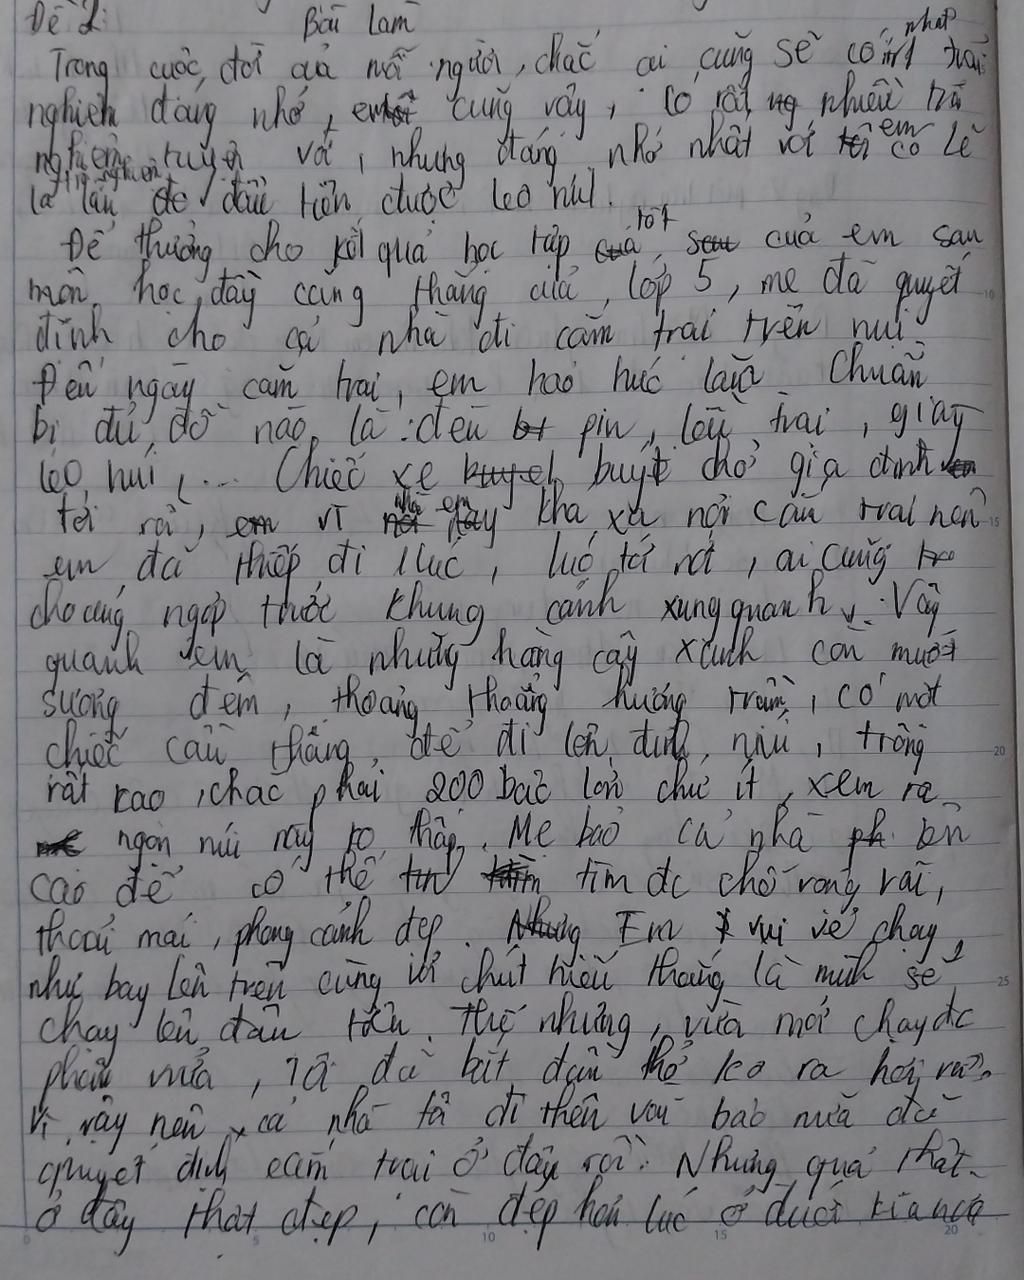 Đề 2: Bài làm
Trong cuộc đời của mỗi người, chắc ai cũng sẽ có 1 trải nhất
nghiệm đáng nhớ, em cũng vậy, có rất nhiều trải
nghiệm tuyệt vời, nhưng đáng nhớ nhất với em có lẽ
là lần đầu tiên được leo núi.
Để thưởng cho kết quả học tập tốt của em sau
môn học đầy căng thẳng của lớp 5, mẹ đã quyết
định cho cả nhà đi cắm trại trên núi
Đến ngày cắm trại, em háo hức lắm. Chuẩn
bị đủ đồ nào là: đèn pin, lều trại, giày
leo núi,... Chiếc xe buýt chở gia đình
tới rồi, vì nhà em khá xa nơi cắm trại nên
em đã thiếp đi 1 lúc, lúc tới nơi, ai cũng
choáng ngợp trước khung cảnh xung quanh. Vây
quanh em là những hàng cây xanh còn mướt
sương đêm, thoang thoảng hương tràm, có một
chiếc cầu thang để đi lên đỉnh núi, trông
rất cao, chắc phải 200 bậc lớn chứ ít, xem ra
ngọn núi này ko thấp. Mẹ bảo cả nhà lên
cao để có thể tìm đc chỗ rộng rãi,
thoải mái, phong cảnh đẹp. Em vui vẻ chạy
như bay lên trên cùng với chút hiếu thắng là mình sẽ
chạy lên đầu tiên. Thế nhưng, vừa mới chạy đc
phần nửa, tôi đã bắt đầu thở ko ra hơi rồi.
Vì vậy nên cả nhà tôi đi thêm vài bậc nữa đã
quyết định cắm trại ở đây rồi. Nhưng quả thật
ở đây thật đẹp, còn đẹp hơn lúc ở dưới kia nữa